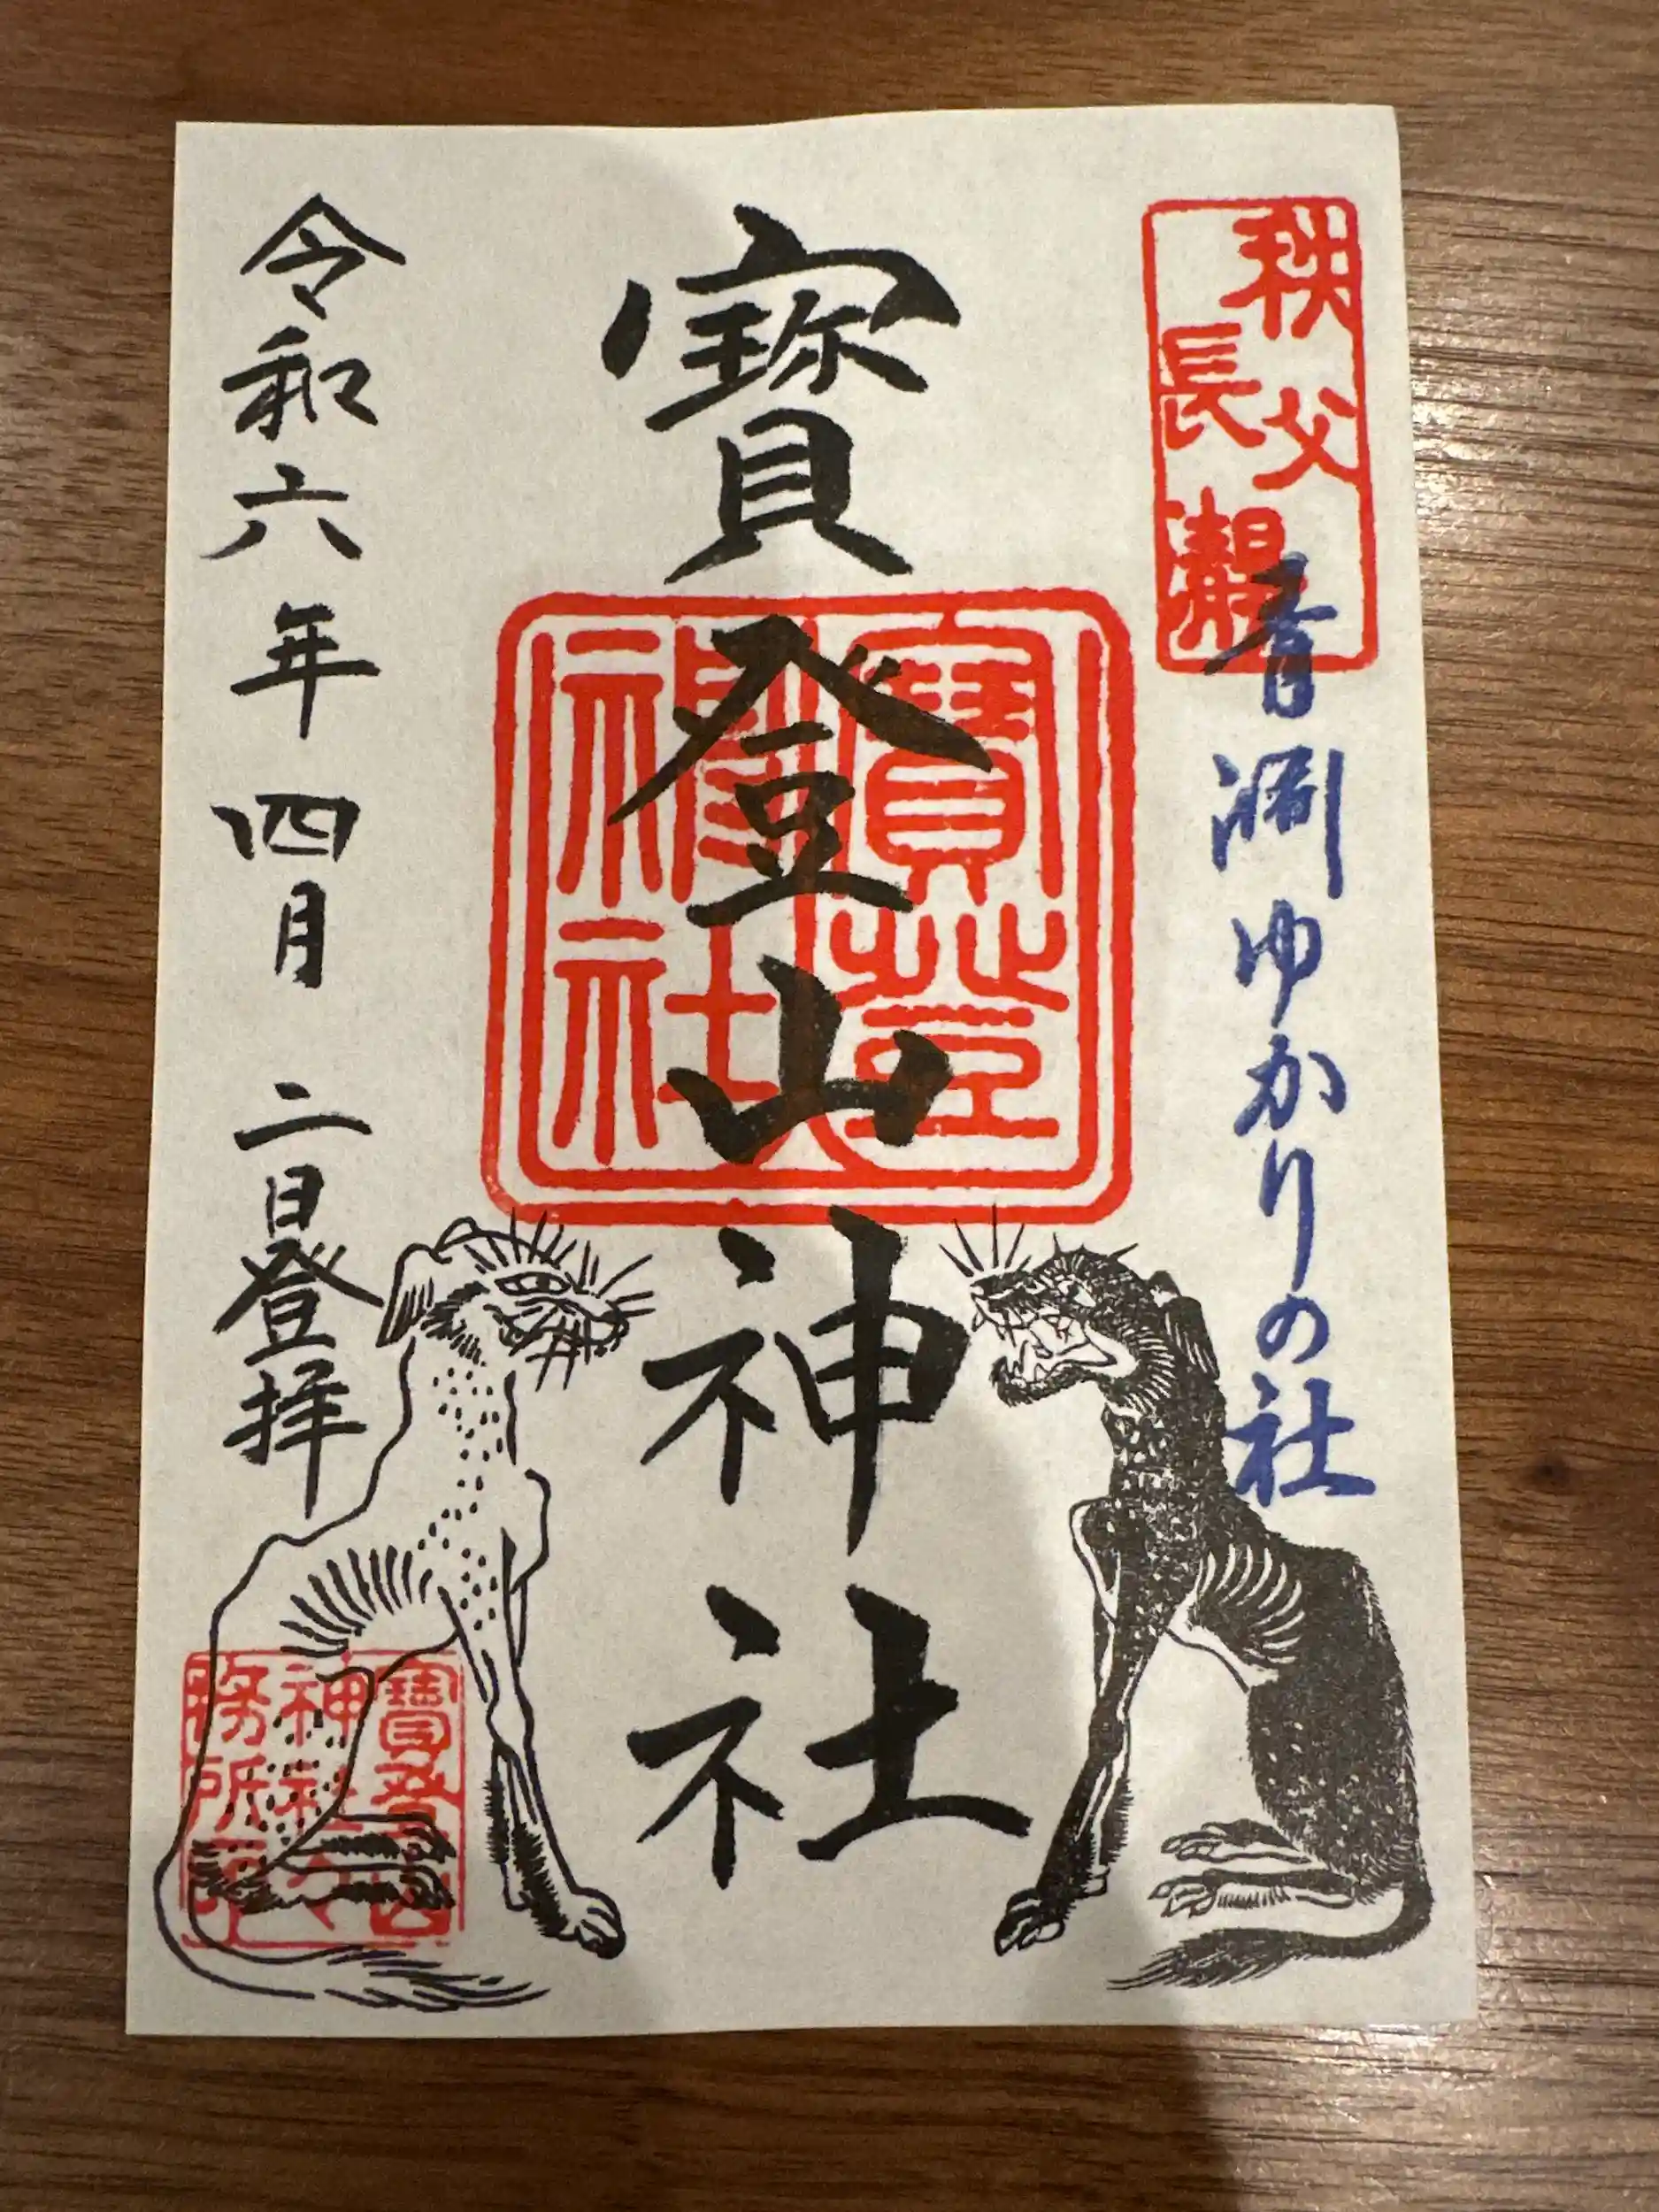 秩父
長瀞
青淵ゆかりの社
寶登山神社
寶登山
神社
令和六年四月二日登拝
寶登山
神社
務所